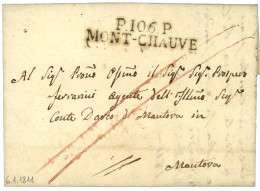 P.106.P
MONT-CHAUVE
Al Sig.r Pño Osño il Sig.r Sig.r Prospero
Ferrarini Agente dell'Illmo Sig.r
Conte Darco di Mantova in
Mantova
6.1.1811